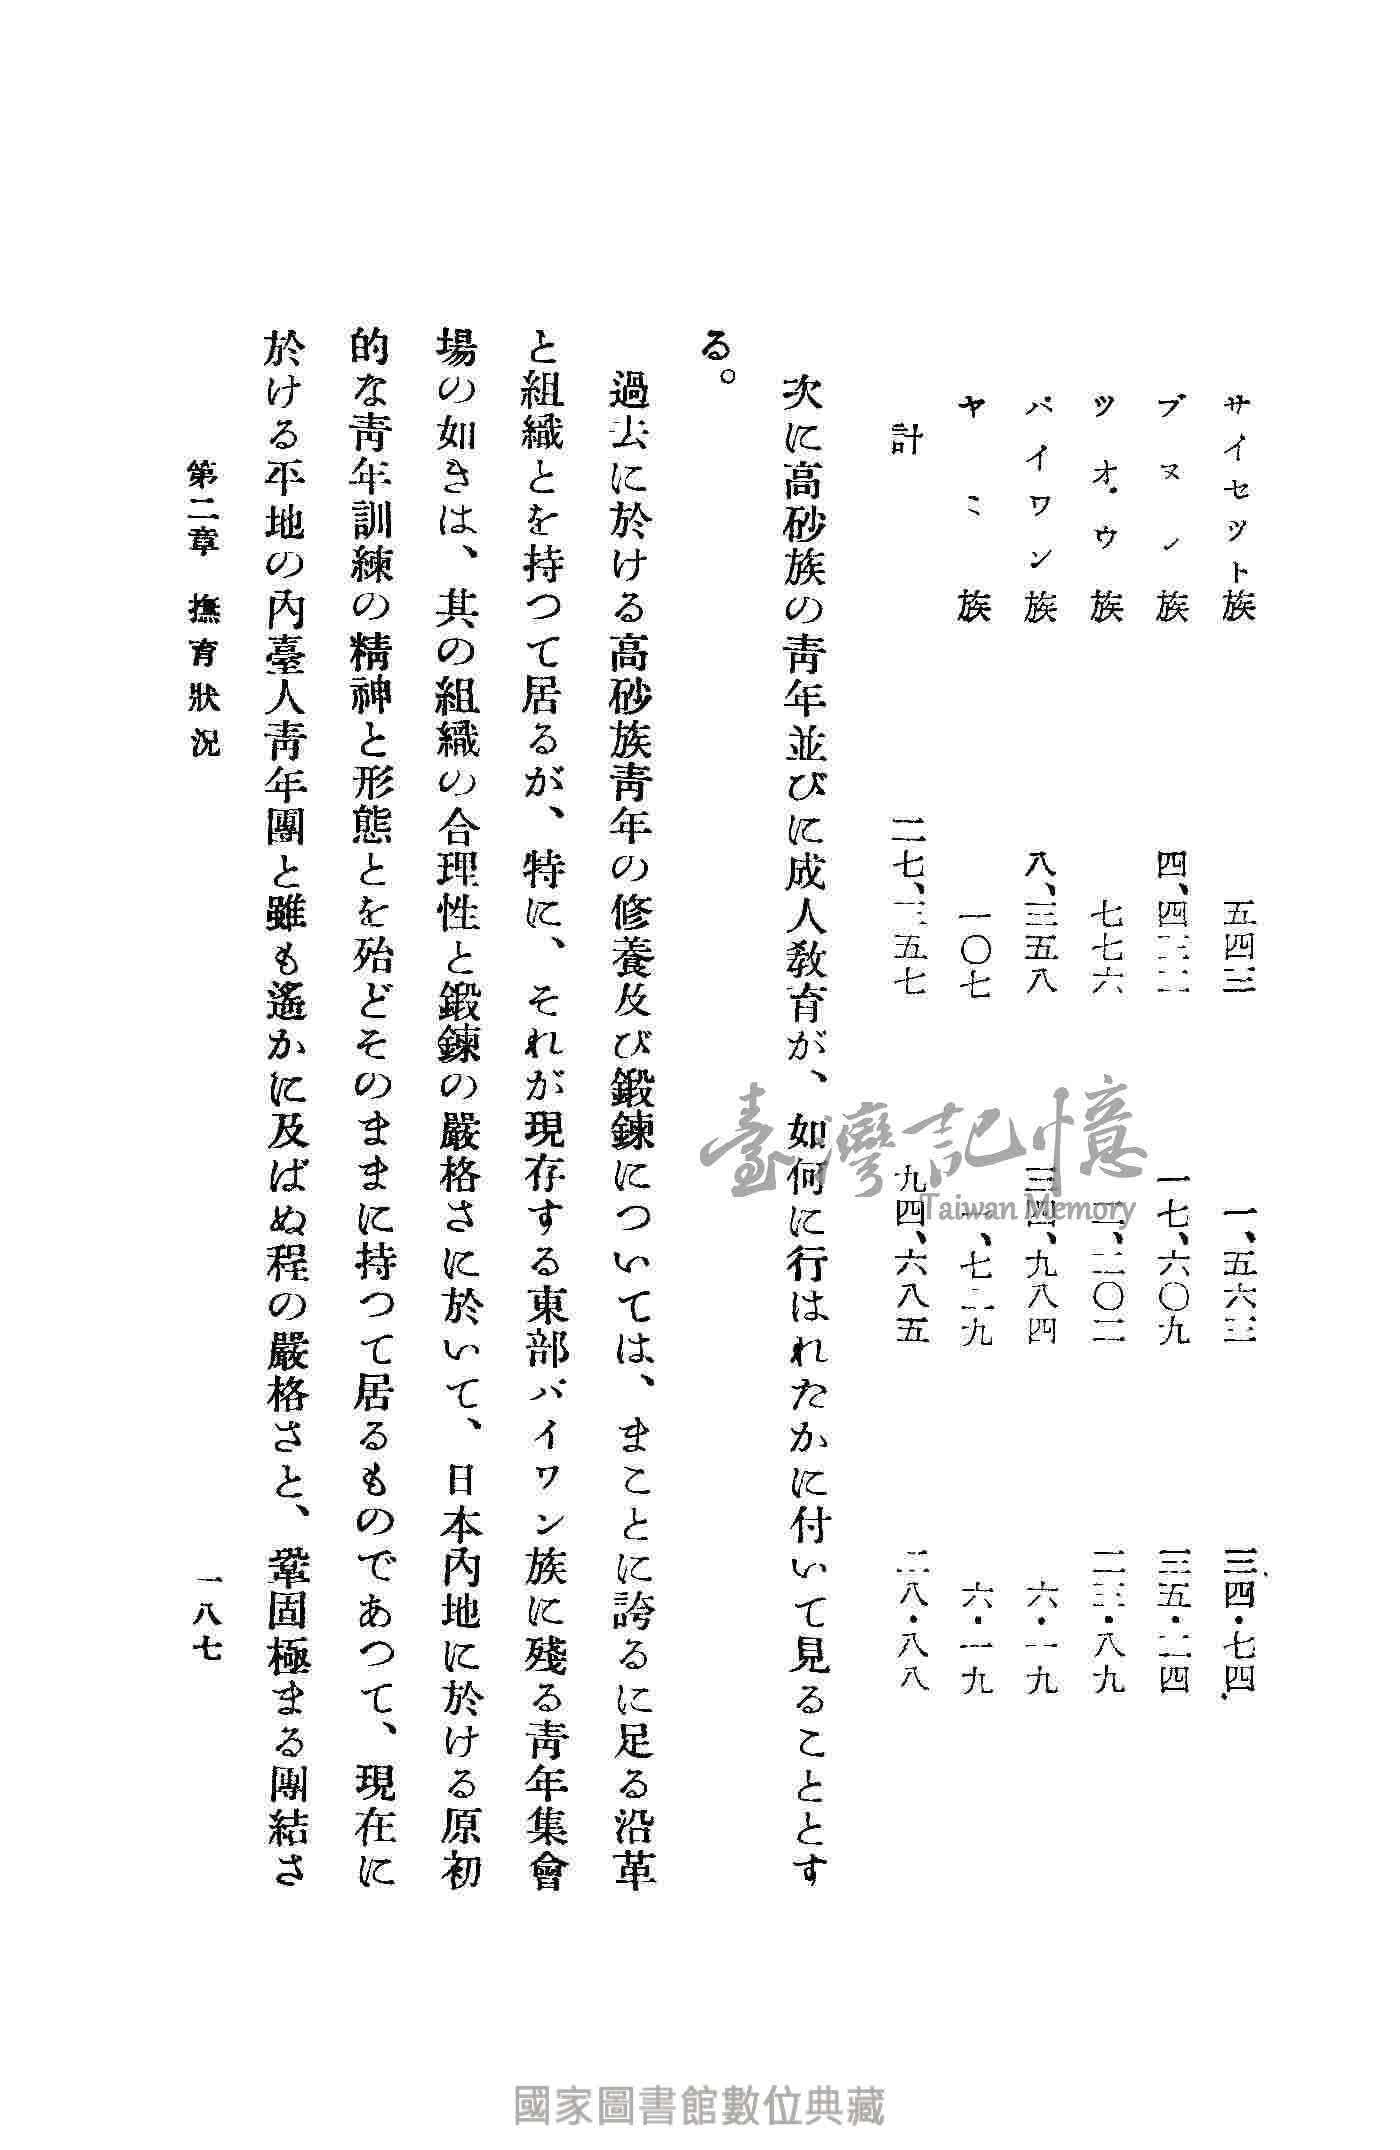 サイセット族 五四三 一、五六三 三四・七四
ブヌン族 四、四三二 一七、六〇九 三五・二四
ツオウ族 七七六 二、二〇二 二三・八九
パイワン族 八、三五八 三四、九八四 六・一九
ヤミ族 一〇七 一、七二九 六・一九
計 二七、三五七 九四、六八五 二八・八八
次に高砂族の靑年並びに成人敎育が、如何に行はれたかに付いて見ることとす
る。
過去に於ける高砂族靑年の修養及び鍛鍊については、まことに誇るに足る沿革
と組織とを持つて居るが、特に、それが現存する東部パイワン族に殘る靑年集會
場の如きは、其の組織の合理性と鍛鍊の嚴格さに於いて、日本內地に於ける原初
的な靑年訓練の精神と形態とを殆どそのままに持つて居るものであつて、現在に
於ける平地の內臺人靑年團と雖も遙かに及ばぬ程の嚴格さと、鞏固極まる團結さ
第二章 撫育狀況
一八七
臺灣記憶
Taiwan Memory
國家圖書館數位典藏